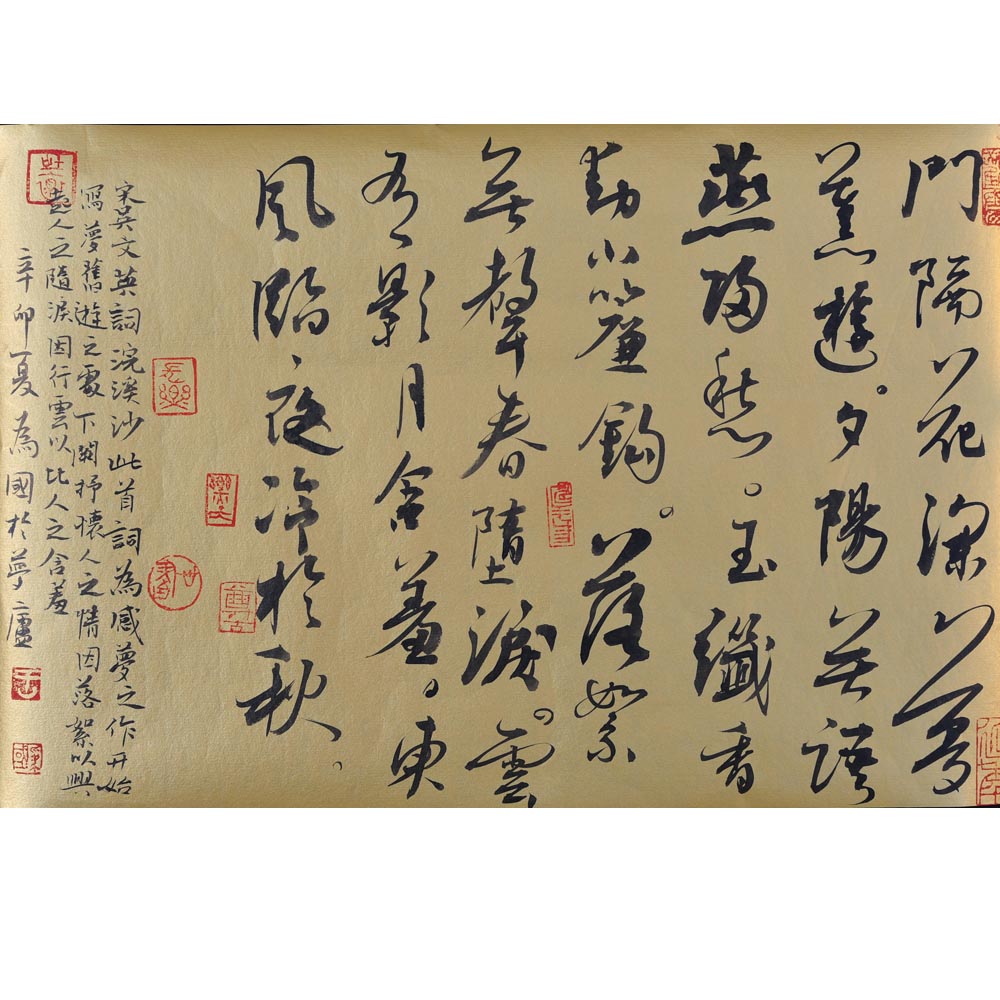 門隔花深夢
舊遊。夕陽無語
燕歸愁。玉纖香
動小簾鈎。落絮
無聲春墮淚。雲
有影月含羞。東
風臨夜冷於秋。
宋吳文英詞浣溪沙此首詞為感夢之作开始
寫夢舊遊之處下闋抒懷人之情因落絮以興
起人之隨淚因行雲以比人之含羞
辛卯夏為國於夢廬
長樂